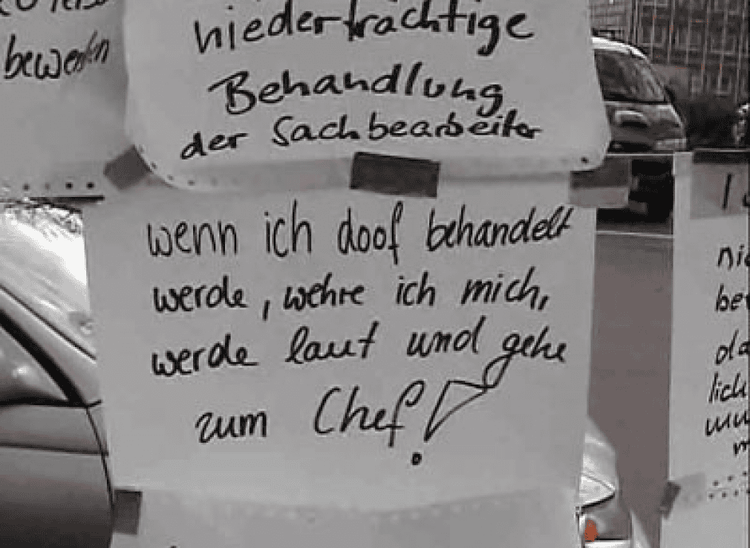 bewerten
niederträchtige
Behandlung
der Sachbearbeiter
wenn ich doof behandelt
werde, wehre ich mich,
werde laut und gehe
zum Chef!